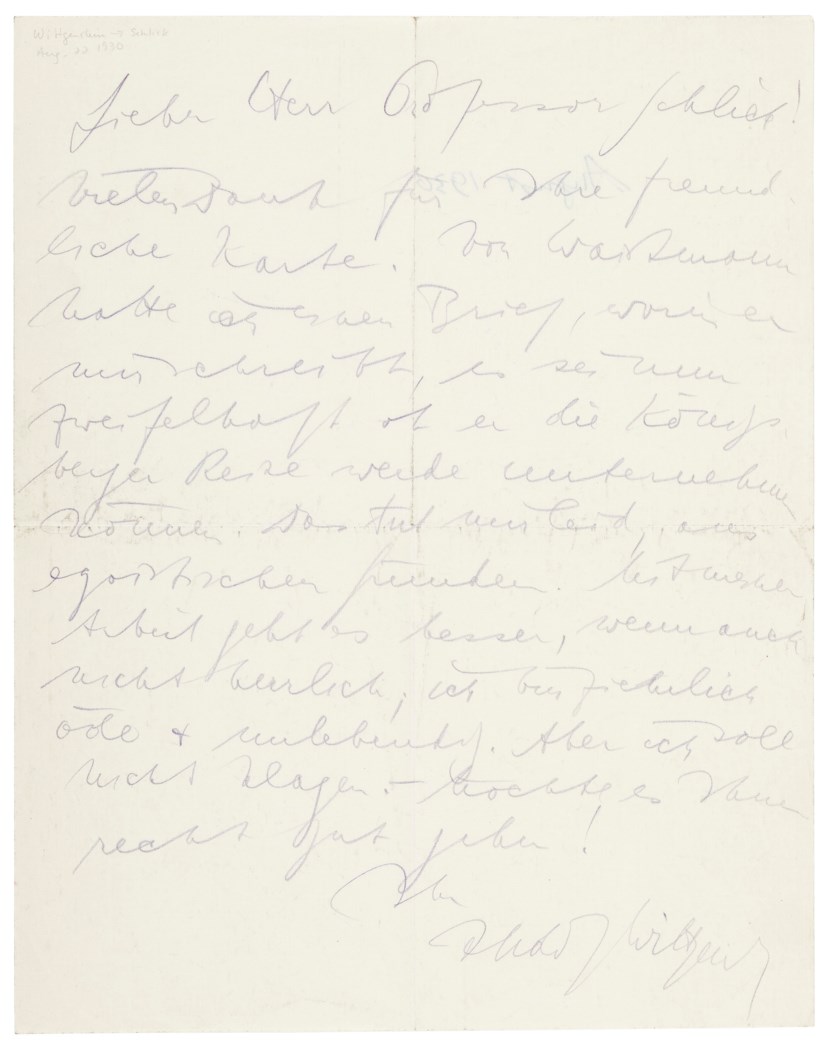 Wittgenstein → Schlick
Aug. 1930
Lieber Herr Professor Schlick!
Vielen Dank für Ihre freund-
liche Karte. Von Waismann
hatte ich einen Brief, worin er
mir schreibt, es sei nun
zweifelhaft ob er die Königs-
berger Reise werde unternehmen
können. Das tut mir leid, aus
egoistischen Gründen. Mit meiner
Arbeit geht es besser, wenn auch
nicht herrlich; ich bin ziemlich
öde + unlebendig. Aber ich soll
nicht klagen. – Möchte es Ihnen
recht gut gehen!
Ihr
Ludwig Wittgenst